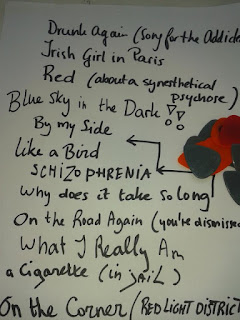 Drunk Again (Song for the Addicte
Irish Girl in Paris
Red (about a synesthetical
psychose)
Blue Sky in the Dark !!
By my Side
Like a Bird
SCHIZOPHRENIA
Why does it take so long
On the Road Again (you're dismissed
What I Really Am
a Cigarette (in jail)
On the Corner (RED LIGHT DISTRICT